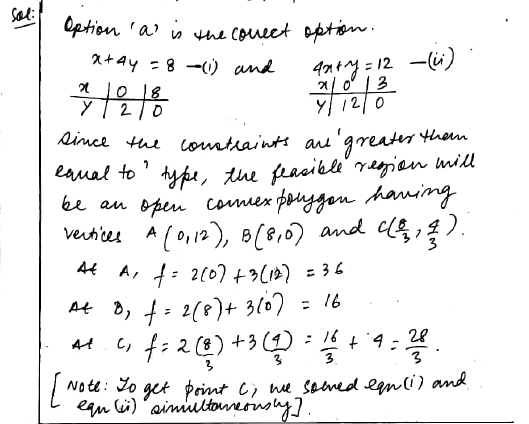 Sol:
Option 'a' is the correct option.
x+4y = 8 —(i) and 4x+y = 12 —(ii)
x | 0 | 8 x | 0 | 3
y | 2 | 0 y | 12 | 0
Since the constraints are 'greater then
equal to' type, the feasible region will
be an open convex polygon having
vertices A(0,12), B(8,0) and C(8/3, 4/3).
At A, f = 2(0) + 3(12) = 36
At B, f = 2(8) + 3(0) = 16
At C, f = 2(8/3) + 3(4/3) = 16/3 + 4 = 28/3.
[Note: To get point C, we solved eqn(i) and
eqn (ii) simultaneously].